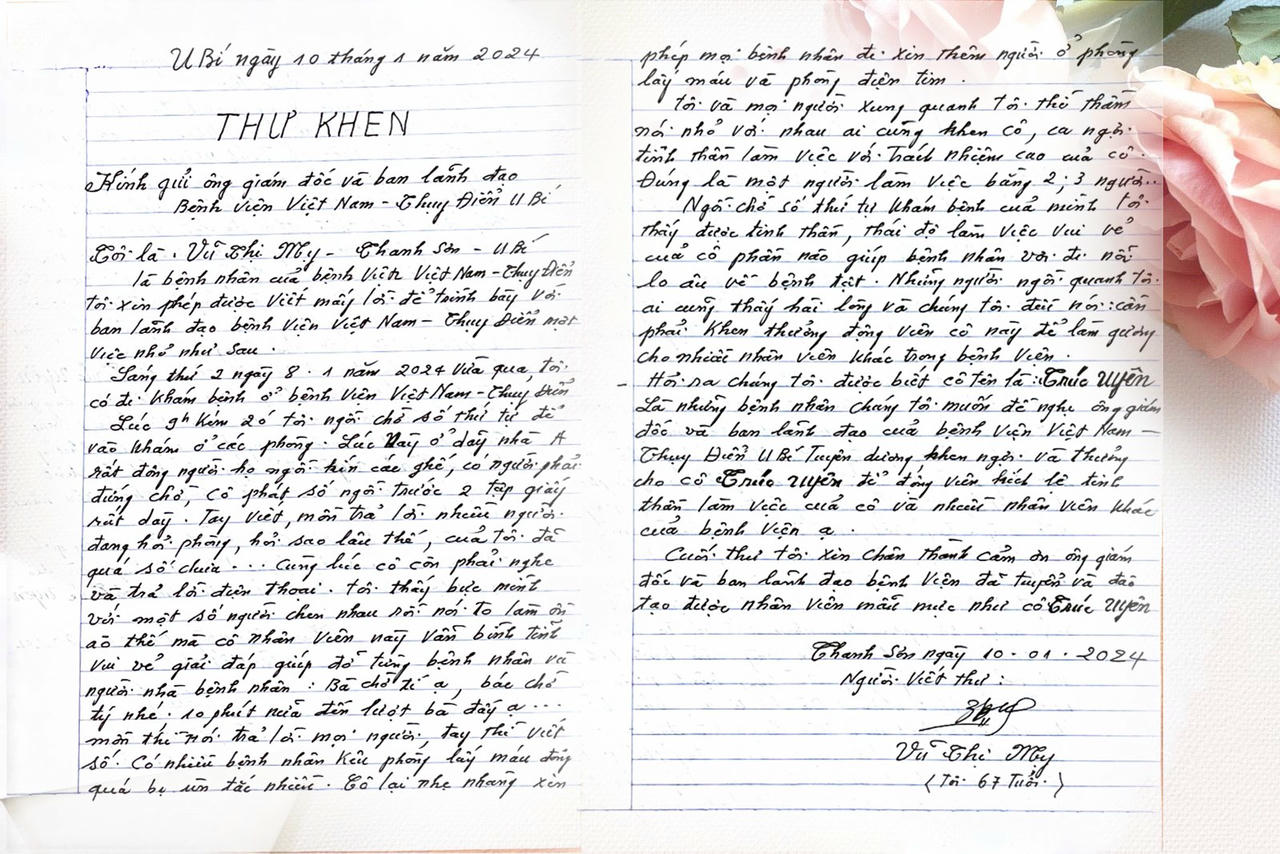 U Bí ngày 10 tháng 1 năm 2024
THƯ KHEN
Kính gửi ông giám đốc và ban lãnh đạo
Bệnh viện Việt Nam - Thụy Điển U Bí
Tôi là : Vũ Thị My - Thanh Sơn - U Bí
là bệnh nhân của bệnh viện Việt Nam - Thụy Điển
tôi xin phép được viết mấy lời để trình bày với
ban lãnh đạo bệnh viện Việt Nam - Thụy Điển một
việc nhỏ như sau .
Sáng thứ 2 ngày 8 . 1 năm 2024 vừa qua, tôi
có đi khám bệnh ở bệnh viện Việt Nam - Thụy Điển
Lúc 9h kém 20 tôi ngồi chờ số thứ tự để
vào khám ở các phòng . Lúc này ở dãy nhà A
rất đông người họ ngồi kín các ghế, có người phải
đứng chờ, cô phát số ngồi trước 2 tập giấy
rất dày . Tay viết, mồm trả lời nhiều người
đang hỏi phòng, hỏi sao lâu thế, của tôi đã
quá số chưa ... Cùng lúc cô còn phải nghe
và trả lời điện thoại . Tôi thấy bực mình
với một số người chen nhau rồi nói to làm ồn
ào thế mà cô nhân viên này vẫn bình tĩnh
vui vẻ giải đáp giúp đỡ từng bệnh nhân và
người nhà bệnh nhân : Bà chờ tí ạ, bác chờ
tý nhé . 10 phút nữa đến lượt bà đấy ạ ...
mồm thì nói trả lời mọi người, tay thì viết
số . Có nhiều bệnh nhân kêu phòng lấy máu đông
quá bị ùn tắc nhiều . Cô lại nhẹ nhàng xin
phép mọi bệnh nhân đi xin thêm người ở phòng
lấy máu và phòng điện tim .
Tôi và mọi người xung quanh tôi thì thầm
nói nhỏ với nhau ai cũng khen cô, ca ngợi
tinh thần làm việc với trách nhiệm cao của cô .
Đúng là một người làm việc bằng 2 ; 3 người ..
Ngồi chờ số thứ tự khám bệnh của mình tôi
thấy được tinh thần, thái độ làm việc vui vẻ
của cô phần nào giúp bệnh nhân vơi đi nỗi
lo âu về bệnh tật . Những người ngồi quanh tôi
ai cũng thấy hài lòng và chúng tôi đều nói : cần
phải khen thưởng động viên cô này để làm gương
cho nhiều nhân viên khác trong bệnh viện .
- Hỏi ra chúng tôi được biết cô tên là : Trúc Uyên
Là những bệnh nhân chúng tôi muốn đề nghị ông giám
đốc và ban lãnh đạo của bệnh viện Việt Nam -
Thụy Điển U Bí Tuyên dương khen ngợi và thưởng
cho cô Trúc Uyên để động viên kích lệ tinh
thần làm việc của cô và nhiều nhân viên khác
của bệnh viện ạ .
Cuối thư tôi xin chân thành cảm ơn ông giám
đốc và ban lãnh đạo bệnh viện đã tuyển và đào
tạo được nhân viên mẫu mực như cô Trúc Uyên
Thanh Sơn ngày 10 . 01 . 2024
Người viết thư :
Vũ Thị My
( Tôi 67 tuổi . )